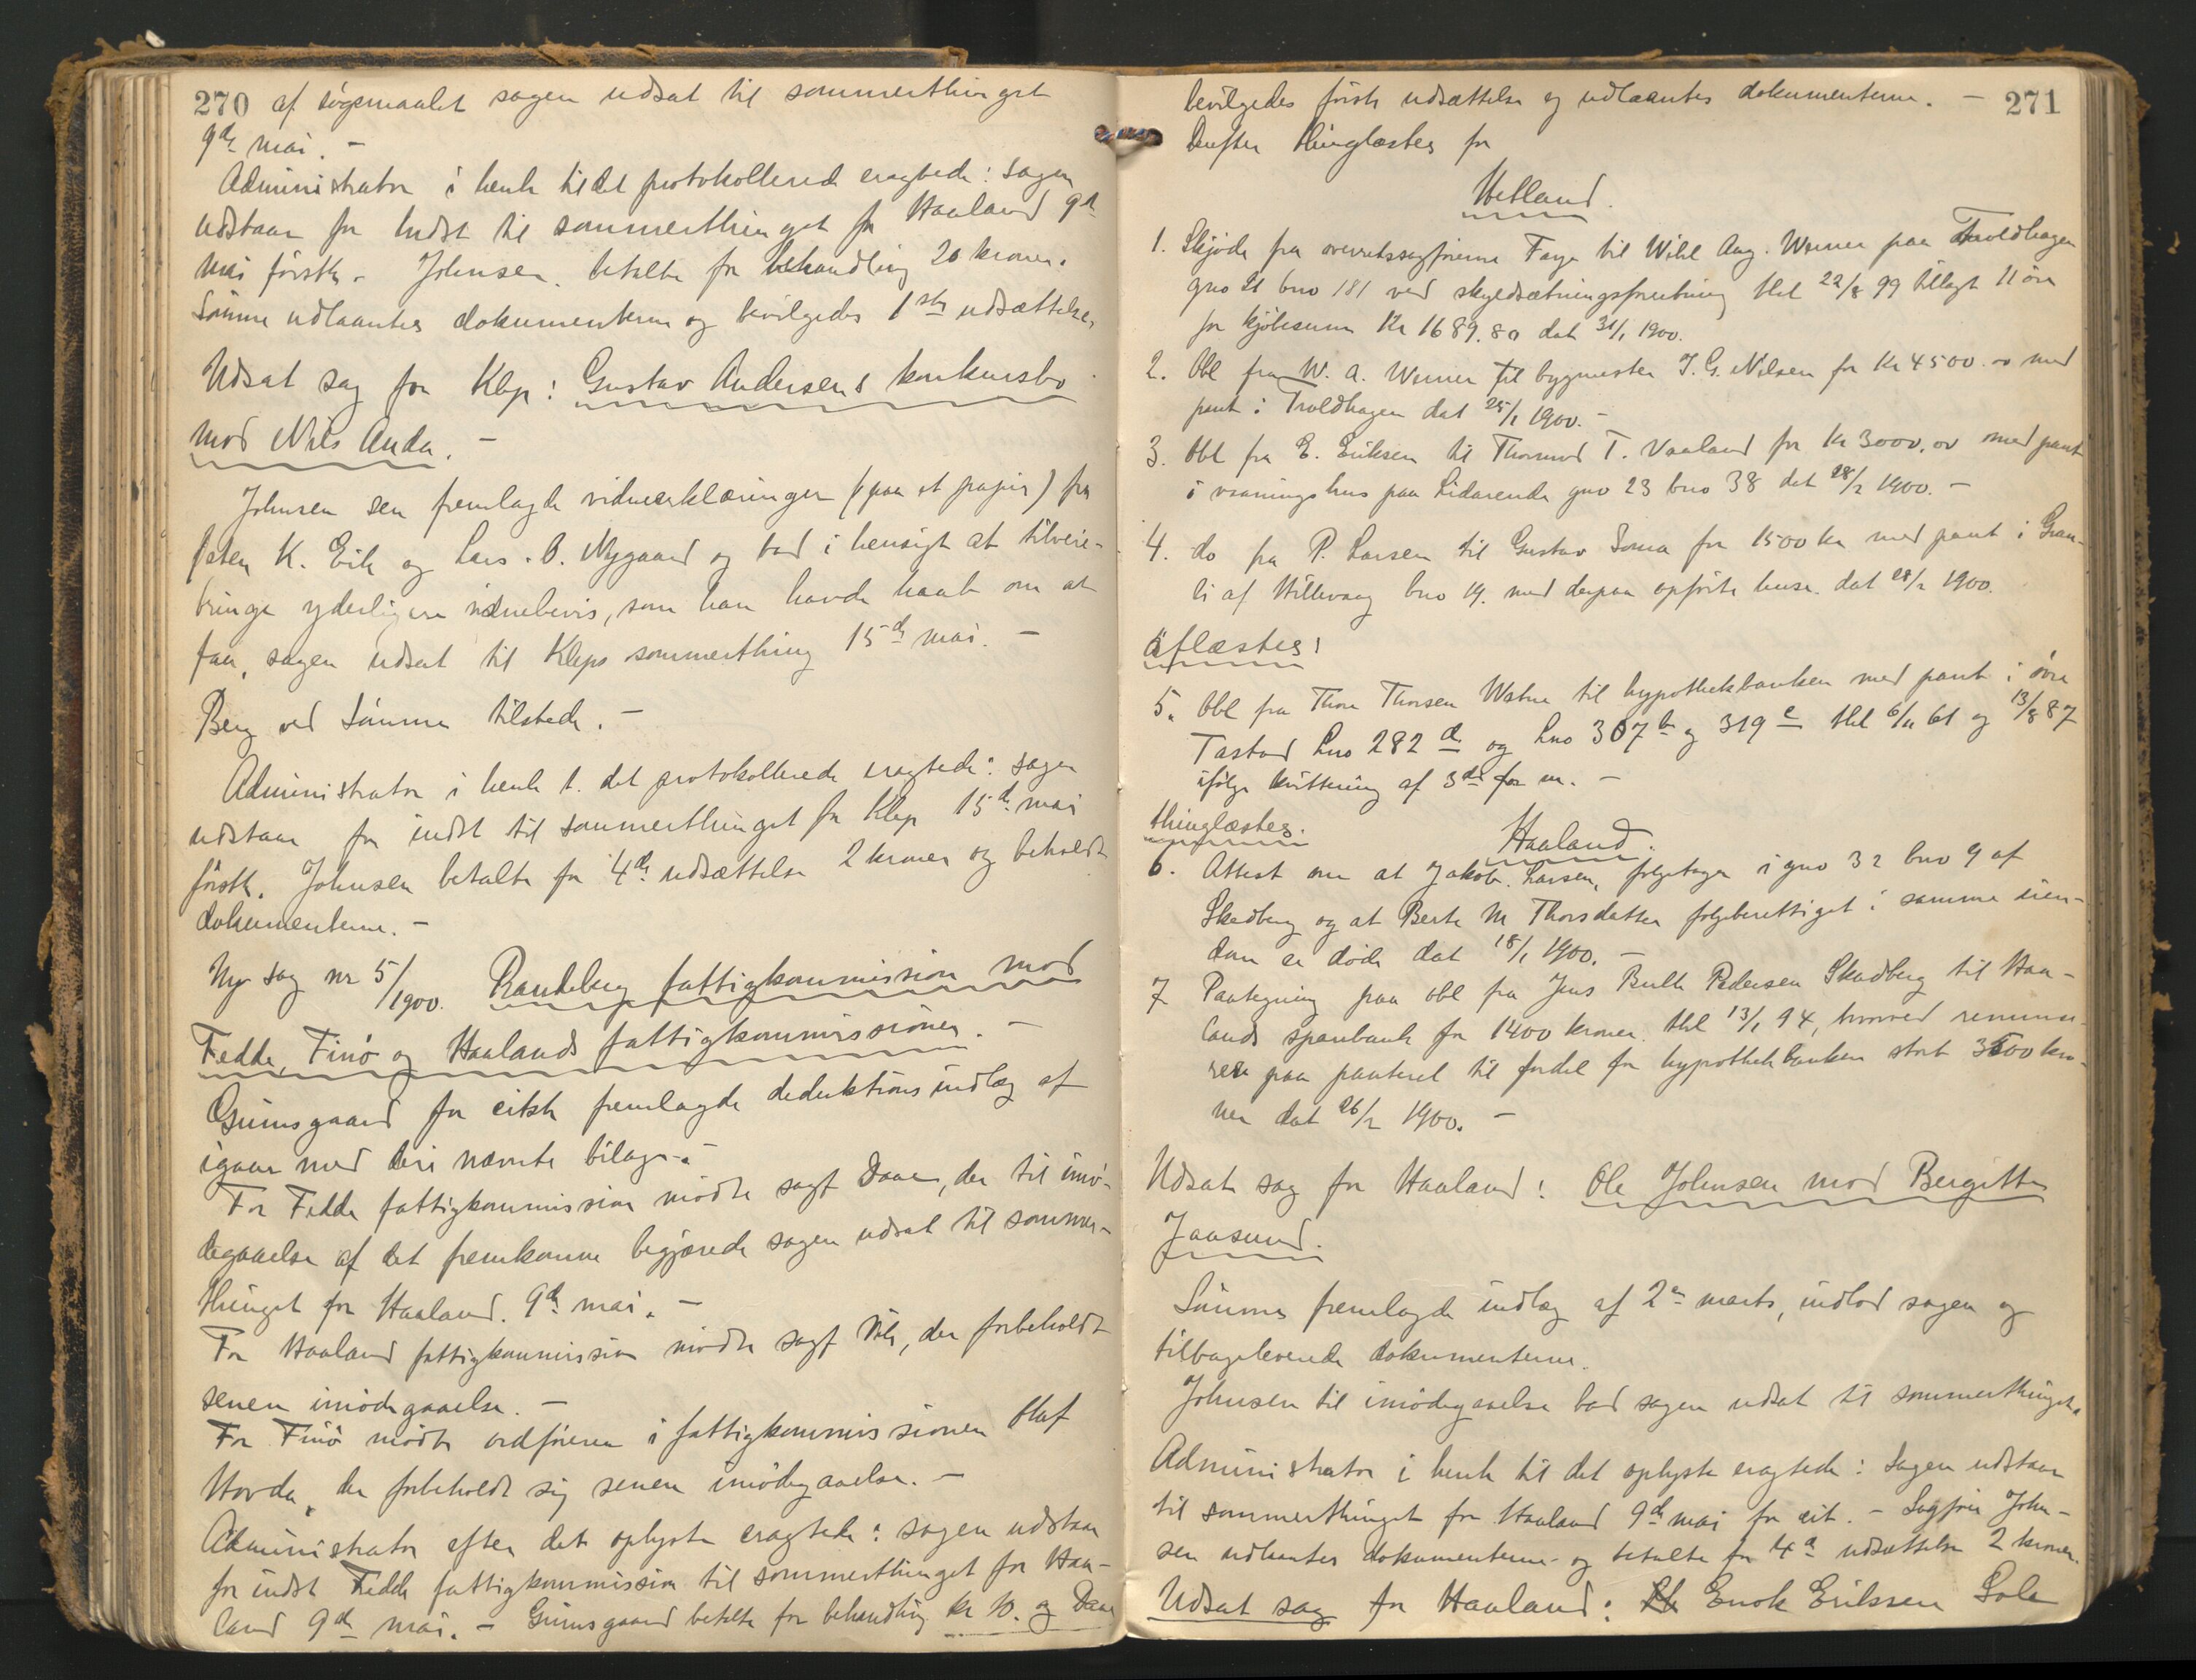 270 af søgsmaalet sagen udsat til sommerthinget
9de mai. —
Administrator i henh til det protokollerede eragtede: Sagen
udstaar for Indst til sommerthinget for Haaland 9de
mai førstk. Johnsen betalte for behandling 20 kroner.
Sømme udlaantes dokumenterne og bevilgedes 1ste udsættelse.
Udsat sag for Klep: Gustav Andersens konkursbo
mod Nils Anda. —
Johnsen sen fremlagde vidneerklæringer (paa et papir) fra
Peten K. Eik og Lars O. Nygaard og bad i hensigt at tilveie-
bringe yderligere vidnebevis, som han havde haab om at
faa, sagen udsat til Kleps sommerthing 15de mai. —
Berg ved Sømme tilstede. —
Administrator i henh t. det protokollerede eragtede: sagen
udstaar for indst til sommerthinget for Klep 15de mai
førstk. Johnsen betalte for 4de udsættelse 2 kroner og beholdt
dokumenterne. —
Ny sag nr 5/1900. Randeberg fattigkommission mod
Fedde, Finø og Haalands fattigkommissioner. —
Grimsgaard for citsk fremlagde deduktionsindlæg af
igaar med deri nævnte bilage.
For Fedde fattigkommission mødte sagf Daae, der til imø-
degaaelse af det fremkomne begjærede sagen udsat til sommer-
thinget for Haaland. 9de mai. —
For Haaland fattigkommission mødte sagf, der forbeholdt
senere imødegaaelse. —
For Finø mødte ordføreren i fattigkommissionen Olaf
Hovda, der forbeholdt sig senere imødegaaelse. —
Administrator efter det oplyste eragtede: sagen udstaar
for indst Fedde fattigkommission til sommerthinget for Haa-
land 9de mai. — Grimsgaard betalte for behandling kr 10. og Daae
bevilgedes første udsættelse og udlaantes dokumenterne. — 271
Derefter thinglæstes for
Hetland.
1. Skjøde fra overretssagførerne Faye til Wilh Aug. Werner paa Troldhagen
gno 21 bno 181 ved skyldsætningsforretning thl 22/8 99 tillagt 11 øre
for kjøbesum Kr 1689.80 dat 31/1 1900.
2. Obl fra W. A. Werner til bygmester J. G. Nilsen for Kr 4500.00 med
pant i Troldhagen dat 25/1 1900. —
3. Obl fra E. Eriksen til Thormod T. Vaaland for kr 3000,00 med pant
i vaaningshus paa Lidarende gno 23 bno 38 dat 28/2 1900. —
4. do fra P. Larsen til Gustav Soma for 1500 kr med pant i Gran-
li af Hillevaag bno 19. med derpaa opførte huse. dat 28/2 1900.
aflæstes:
5. Obl fra Thore Thorsen Watne til hypothekbanken med pant i øvre
Tastad Lno 282 d og Lno 307 b og 319 c thl 6/11 61 og 13/8 87
ifølge kvittering af 3de f. m. —
thinglæstes. Haaland.
6. Attest om at Jakob Larsen, folgetager i gno 32 bno 9 af
Skadberg og at Berte M Thorsdatter folgeberettiget i samme eien-
dom er døde dat 18/1 1900. —
7 Paategning paa obl fra Jens Bulh Pedersen Skadberg til Haa-
lands sparebank for 1400 kroner thl 13/1 94, hvorved renunse-
rere paa panteret til fordel for hypothekbanken stort 3500 kro-
ner dat 26/2 1900. —
Udsat sag for Haaland: Ole Johnsen mod Bergitte
Jaasund.
Sømme fremlagde indlæg af 2en marts, indlod sagen og
tilbageleverede dokumenterne.
Johnsen til imødegaaelse bad sagen udsat til sommerthinget.
Administrator i henh til det oplyste eragtede: Sagen udstaar
til sommerthinget for Haaland 9de mai for cit. — Sagfører John-
sen udlaantes dokumenterne og betalte for 4de udsættelse 2 kroner.
Udsat sag for Haaland: Enok Erikssen Sola